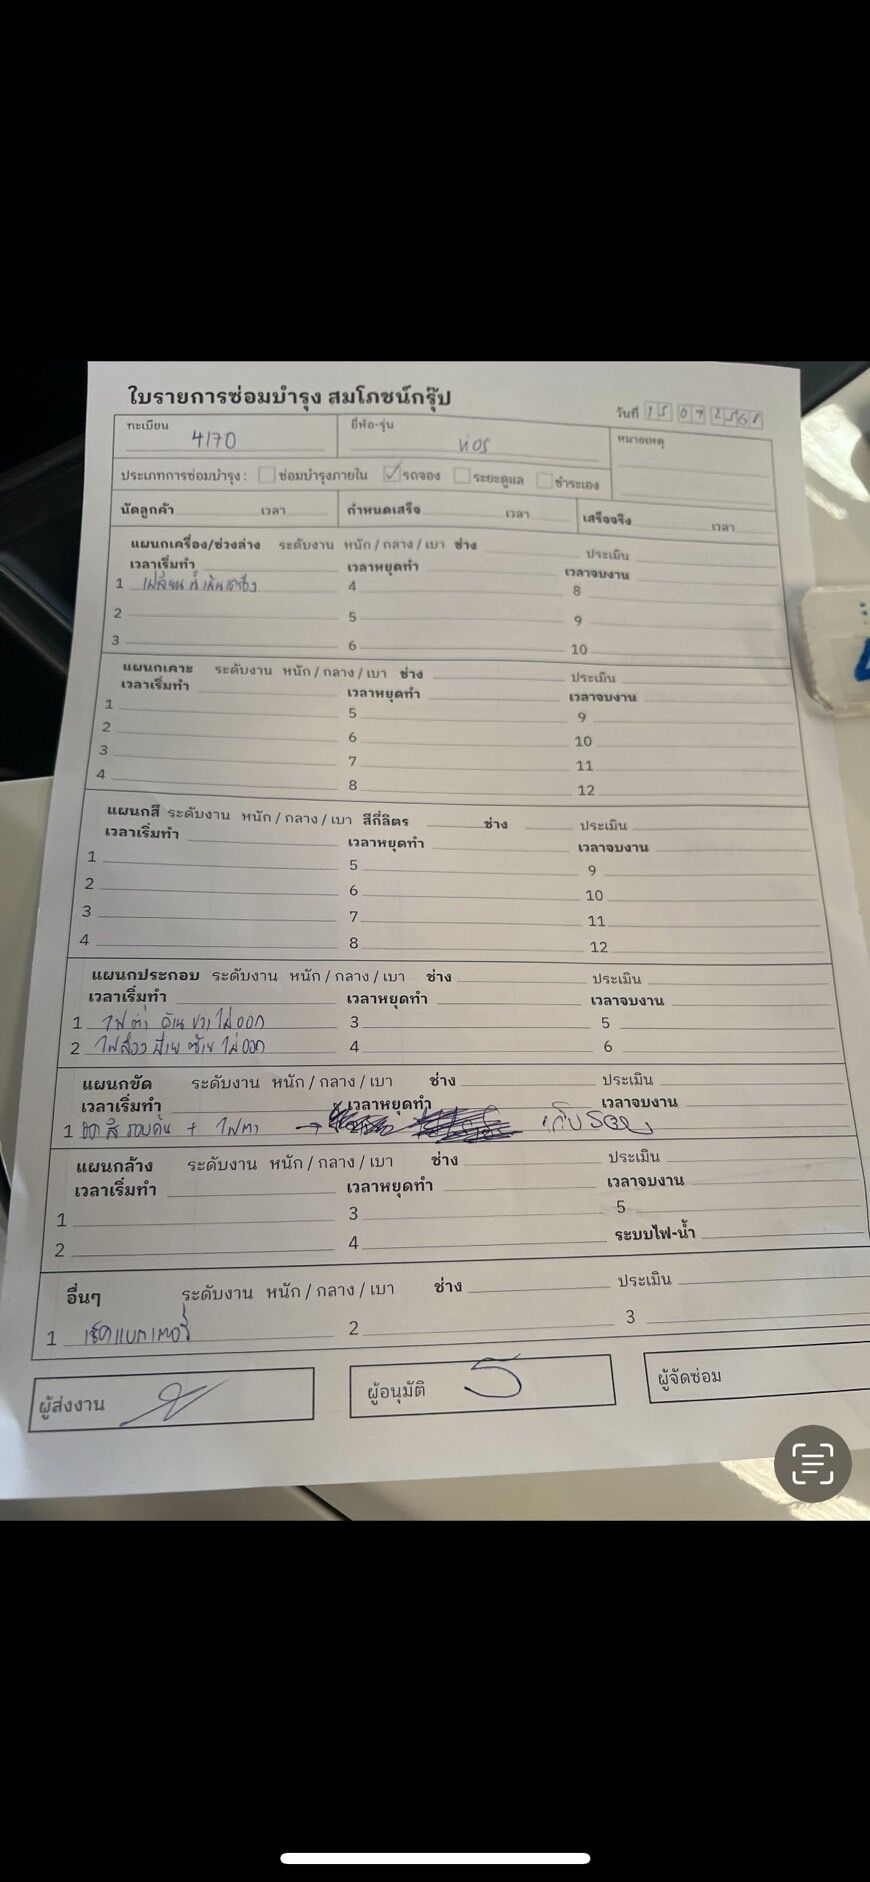 ใบรายการซ่อมบำรุง สมโภชน์กรุ๊ป
วันที่ 15 07 2568
ทะเบียน 4170 ยี่ห้อ-รุ่น vios หมายเหตุ
ประเภทการซ่อมบำรุง : ซ่อมบำรุงภายใน ✓ รถจอง ระยะดูแล ชำระเอง
นัดลูกค้า เวลา กำหนดเสร็จ เวลา เสร็จจริง เวลา
แผนกเครื่อง/ช่วงล่าง ระดับงาน หนัก / กลาง / เบา ช่าง ประเมิน
เวลาเริ่มทำ เวลาหยุดทำ เวลาจบงาน
1 เปลี่ยนน้ำมันเครื่อง 4 8
2 5 9
3 6 10
แผนกเคาะ ระดับงาน หนัก / กลาง / เบา ช่าง ประเมิน
เวลาเริ่มทำ เวลาหยุดทำ เวลาจบงาน
1 5 9
2 6 10
3 7 11
4 8 12
แผนกสี ระดับงาน หนัก / กลาง / เบา สีกี่ลิตร ช่าง ประเมิน
เวลาเริ่มทำ เวลาหยุดทำ เวลาจบงาน
1 5 9
2 6 10
3 7 11
4 8 12
แผนกประกอบ ระดับงาน หนัก / กลาง / เบา ช่าง ประเมิน
เวลาเริ่มทำ เวลาหยุดทำ เวลาจบงาน
1 ไฟต่ำ ด้านขวาไม่ออก 3 5
2 ไฟส่องป้าย ซ้ายไม่ออก 4 6
แผนกขัด ระดับงาน หนัก / กลาง / เบา ช่าง ประเมิน
เวลาเริ่มทำ เวลาหยุดทำ เวลาจบงาน
1 ขัดสีรอบคัน + ไฟตา → เก็บรอย
แผนกล้าง ระดับงาน หนัก / กลาง / เบา ช่าง ประเมิน
เวลาเริ่มทำ เวลาหยุดทำ เวลาจบงาน
1 3 5
2 4 ระบบไฟ-น้ำ
อื่นๆ ระดับงาน หนัก / กลาง / เบา ช่าง ประเมิน
1 เช็คแบตเตอรี่ 2 3
ผู้ส่งงาน ผู้อนุมัติ ผู้จัดซ่อม